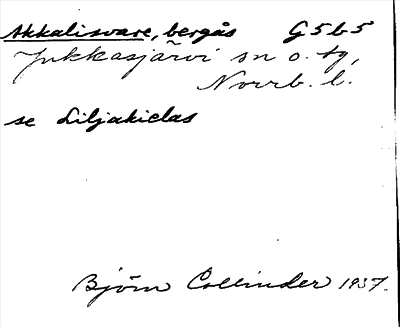 Akkalisvare, bergås G5b5
Jukkasjärvi sn o. tg,
Norrb. l.
se Liljakielas
Björn Collinder 1937.